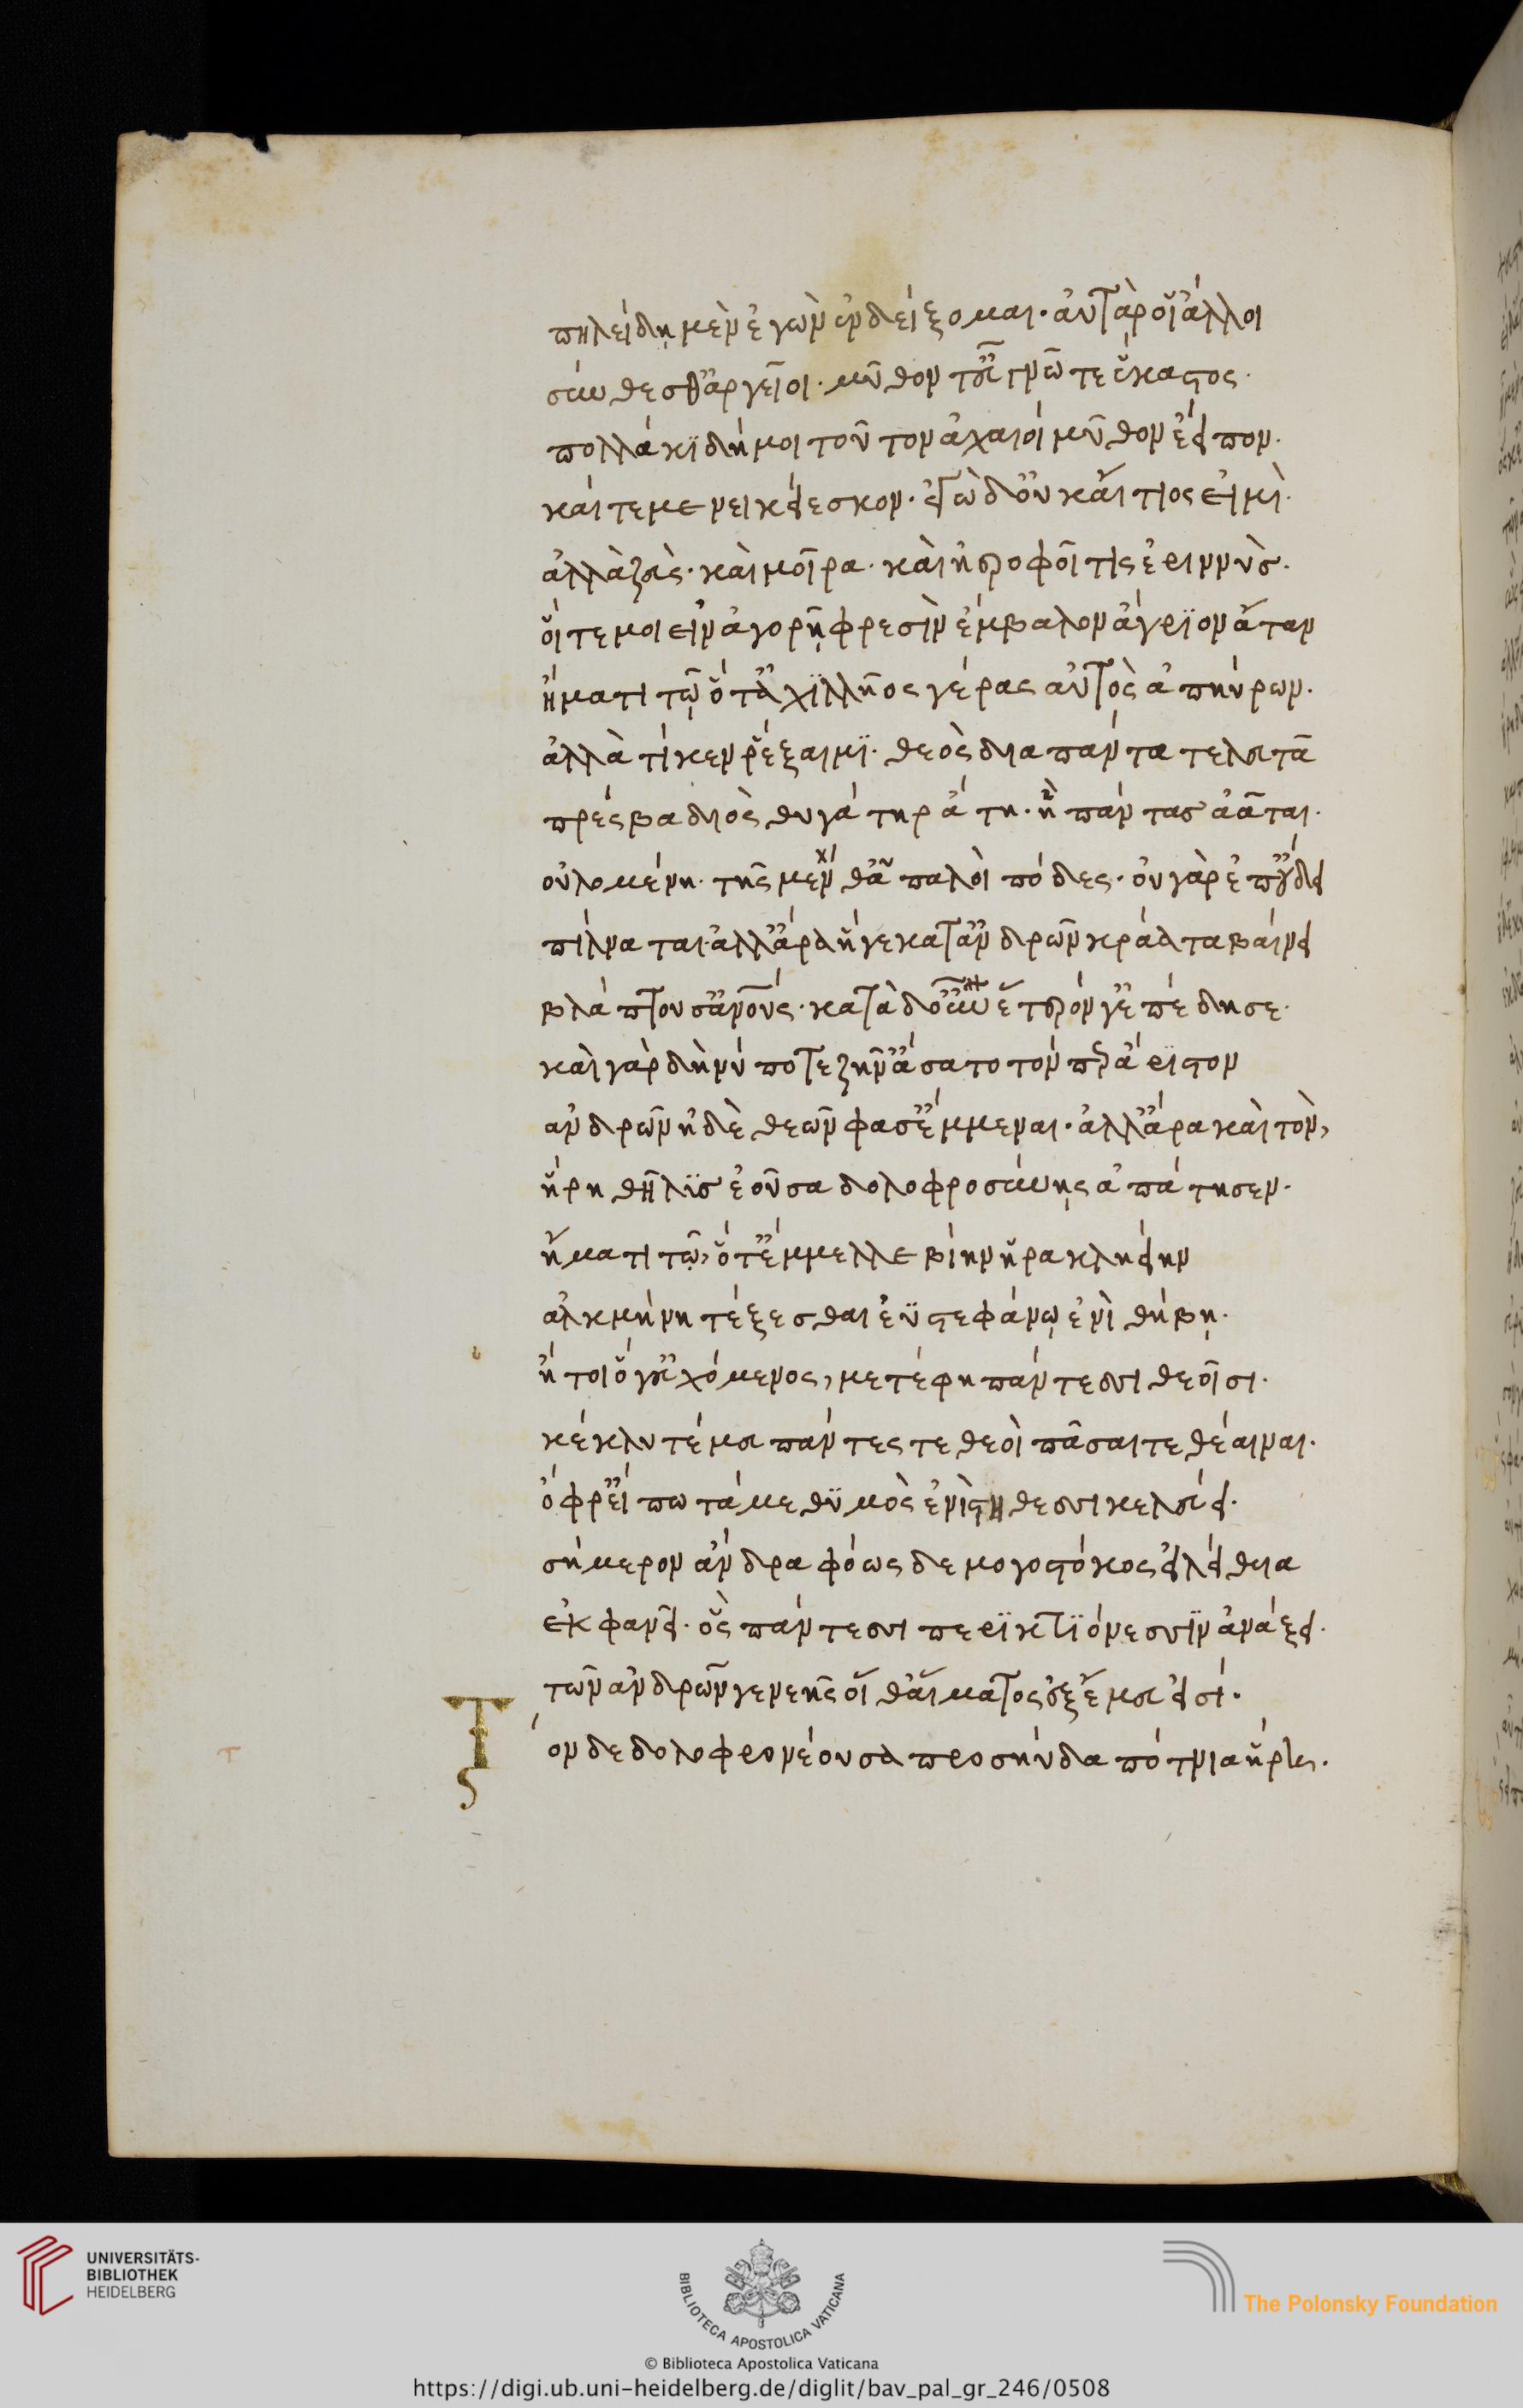 πηλείδῃ μὲν ἐγὼν ἐνδείξομαι· ἀυτὰρ οἵ ἄλλοι
σύνθεσθ' ἀργεῖοι· μῦθον τ' εὖ γνῶτε ἕκαστος·
πολλάκϊ δή μοι τοῦτον ἀχαιοί μῦθον ἔειπον·
καί τε με νεικείεσκον· ἐγὼ δ' οὐκ ἄιτιος εἰμὶ·
ἀλλὰ ζεὺς· καὶ μοῖρα· καὶ ἠεροφοῖτις ἐριννὺσ·
οἵ τε μοι εἰν ἀγορῇ φρεσὶν ἔμβαλον ἄγρϊον ἄταν
ἤματι τῷ ὅτ' ἀχϊλλῆος γέρας αὐτὸς ἀπηύρων·
ἀλλὰ τί κεν ῥέξαιμϊ· θεὸς δια πάντα τελευτᾶ
πρέσβα διὸς θυγάτηρ ἄτη· ἣ πάντασ ἀᾶται·
οὐλομένη· τῆς μέν θ' ἁπαλοὶ πόδες· οὐ γὰρ ἐπ' οὔδει
πίλναται· ἀλλ' ἄρα ἥγε κατ' ἀνδρῶν κράατα βαίνει
βλάπτουσ' ἀνθρώπους· κατὰ δ' οὖν ἕτερόν γε πέδησε·
καὶ γὰρ δή νύ ποτε ζῆν' ἄσατο τόν περ ἄρϊστον
ἀνδρῶν ἠδὲ θεῶν φασ' ἔμμεναι· ἀλλ' ἄρα καὶ τὸν,
ἥρη θῆλϋσ ἐοῦσα δολοφροσύνῃς ἀπάτησεν·
ἤματι τῷ, ὅτ' ἔμμελλε βίην ἡρακληείην
ἀλκμήνη τέξεσθαι ἐϋστεφάνῳ ἐνὶ θήβῃ·
ἤτοι ὅγ' εὐχόμενος, μετέφη πάντεσσι θεοῖσι·
κέκλυτέ μευ πάντες τε θεοὶ πᾶσαι τε θέαιναι·
ὄφρ' εἴπω τά με θϋμὸς ἐνὶ στήθεσσι κελεύει·
σήμερον ἄνδρα φόως δε μογοστόκος εἰλείθυια
ἐκφανεῖ· ὃς πάντεσσι περϊκτϊόνεσσϊν ἀνάξει·
τῶν ἀνδρῶν γενεῆς οἵ θ' αἵματος ἐξ ἐμεῦ εἰσί·
Τὸν δε δολοφρονέουσα προσηύδα πότνια ἥρη·
UNIVERSITÄTS-
BIBLIOTHEK
HEIDELBERG
BIBLIOTECA APOSTOLICA VATICANA
The Polonsky Foundation
© Biblioteca Apostolica Vaticana
https://digi.ub.uni-heidelberg.de/diglit/bav_pal_gr_246/0508